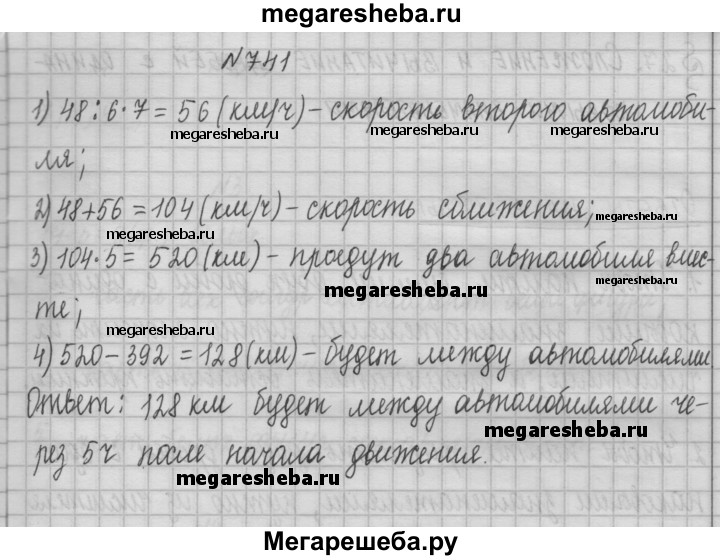 megaresheba.ru
№741
1) 48:6·7=56 (км/ч) - скорость второго автомоби-
megaresheba.ru megaresheba.ru megaresheba.ru
ля;
2) 48+56=104 (км/ч) - скорость сближения; megaresheba.ru
megaresheba.ru
3) 104·5=520 (км) - проедут два автомобиля вмес-
megaresheba.ru
те;
megaresheba.ru
4) 520-392=128 (км) - будет между автомобилями
Ответ: 128 км будет между автомобилями че-
megaresheba.ru
рез 5ч после начала движения.
megaresheba.ru
Мегарешеба.ру